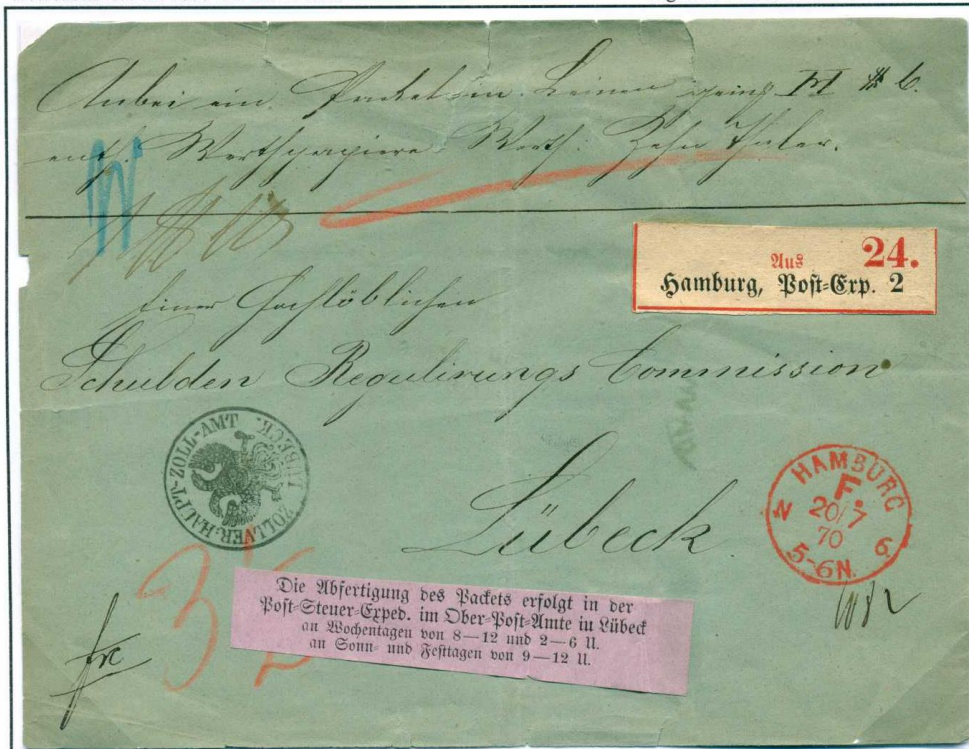 Anbei ein Packet in Leinen
Werthpapiere Werth: Zehn Thaler.
Aus 24.
Hamburg, Post-Exp. 2
Einer Hochlöblichen
Schulden Regulirungs Commission
Lübeck
ZOLLVER. HAUPT-ZOLL-AMT LÜBECK.
HAMBURG
F.
20/7
70
5-6N.
N 6.
32
Die Abfertigung des Packets erfolgt in der
Post-Steuer-Exped. im Ober-Post-Amte in Lübeck
an Wochentagen von 8—12 und 2—6 U.
an Sonn- und Festtagen von 9—12 U.